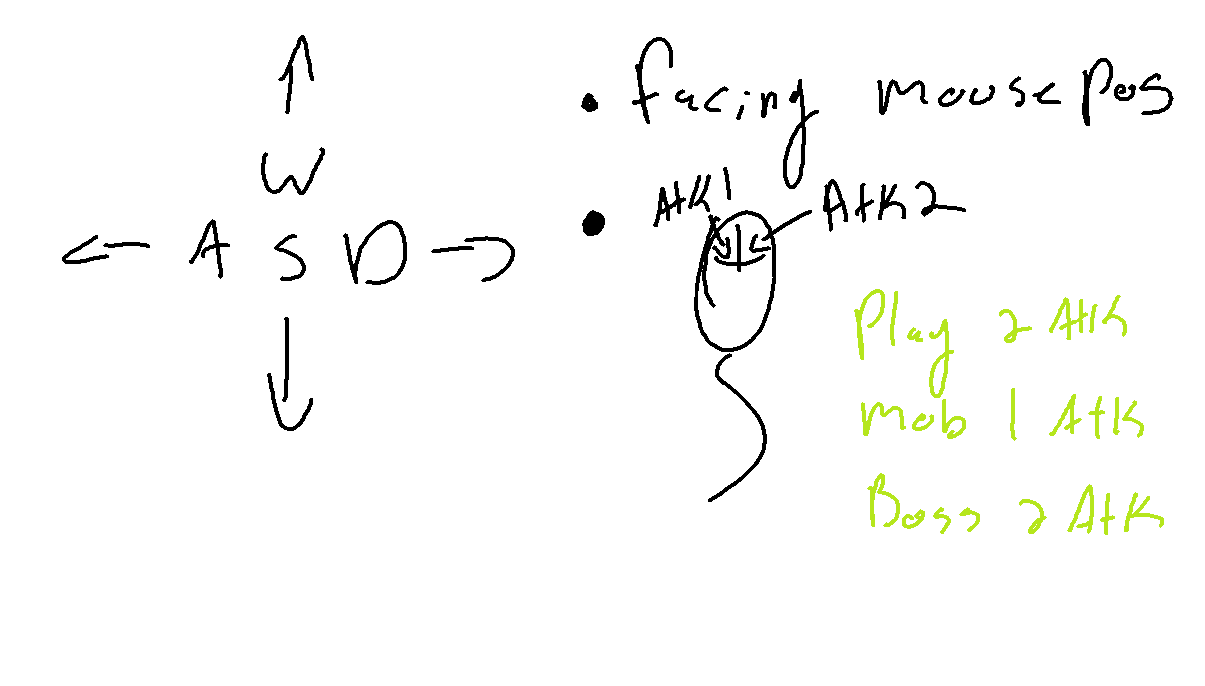 W
A S D
facing mouse Pos
AtK1
AtK2
Play 2 AtK
mob 1 AtK
Boss 2 AtK